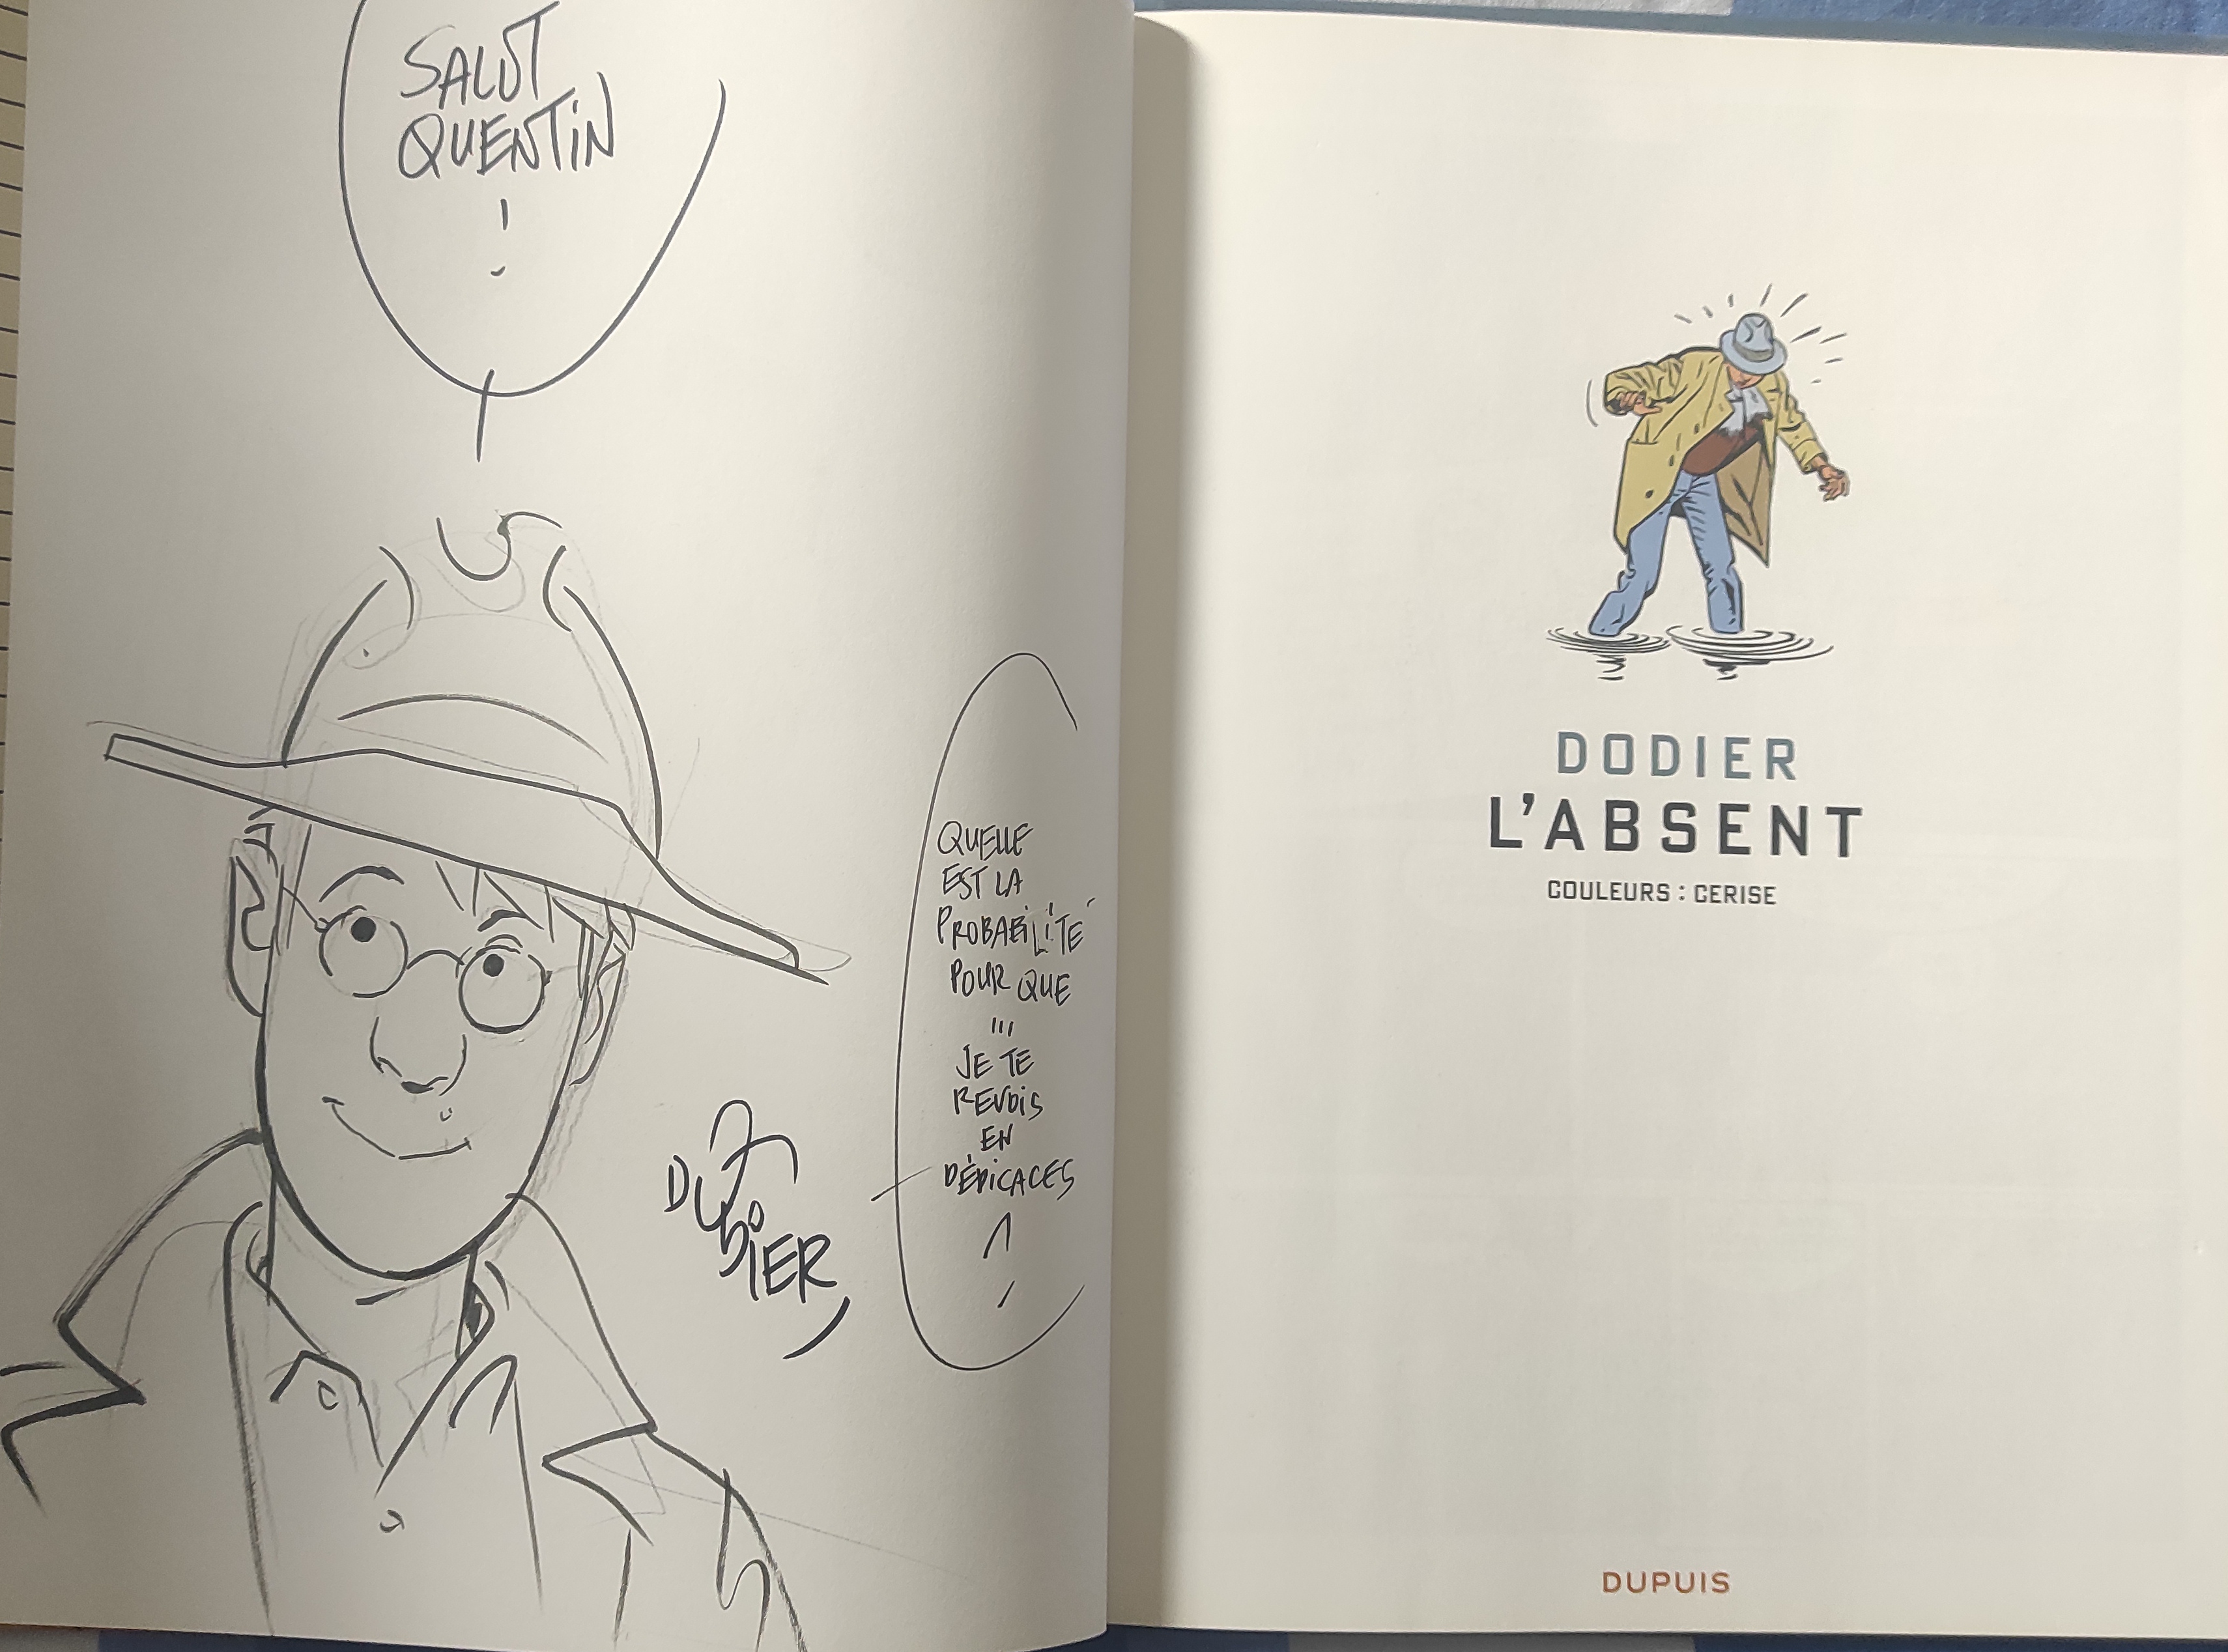 SALUT
QUENTIN
!
QUELLE
EST LA
PROBABILITÉ
POUR QUE
...
JE TE
REVOIS
EN
DÉDICACES
?
DODIER
DODIER
L'ABSENT
COULEURS : CERISE
DUPUIS